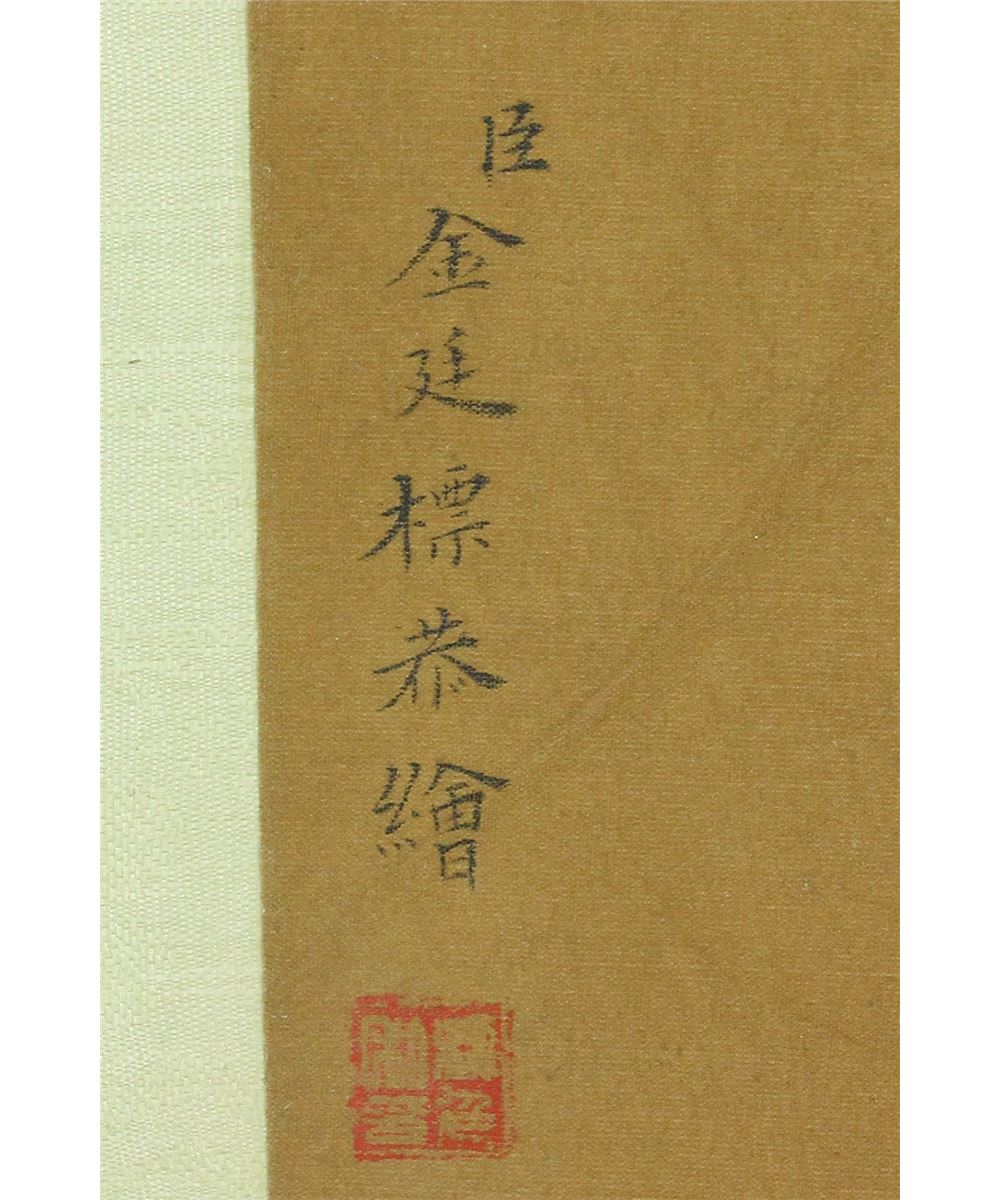 臣金廷標恭繪